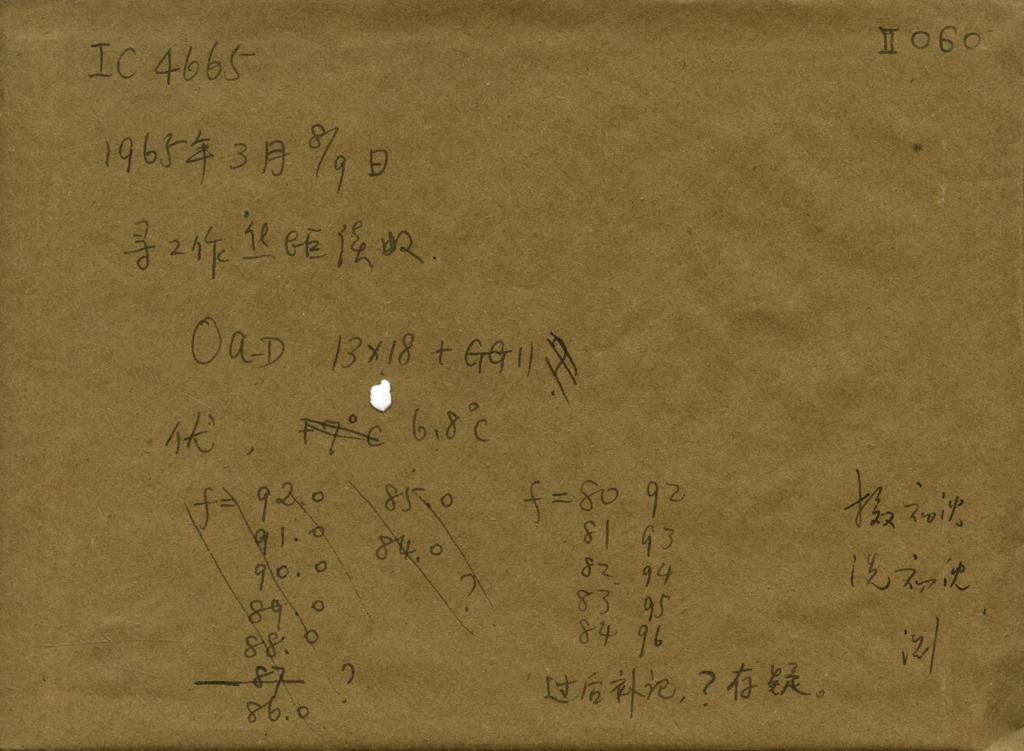 IC 4665
II 060
1965年3月8/9日
寻工作焦距读数.
Oa-D 13x18 + GG11
优, 17°C 6.8°C
f= 92.0 85.0
91.0 84.0
90.0
89.0 ?
88.0
87 ?
86.0
f=80 92
81 93
82 94
83 95
84 96
过后补记,?存疑。
摄 沈
洗 沈
测